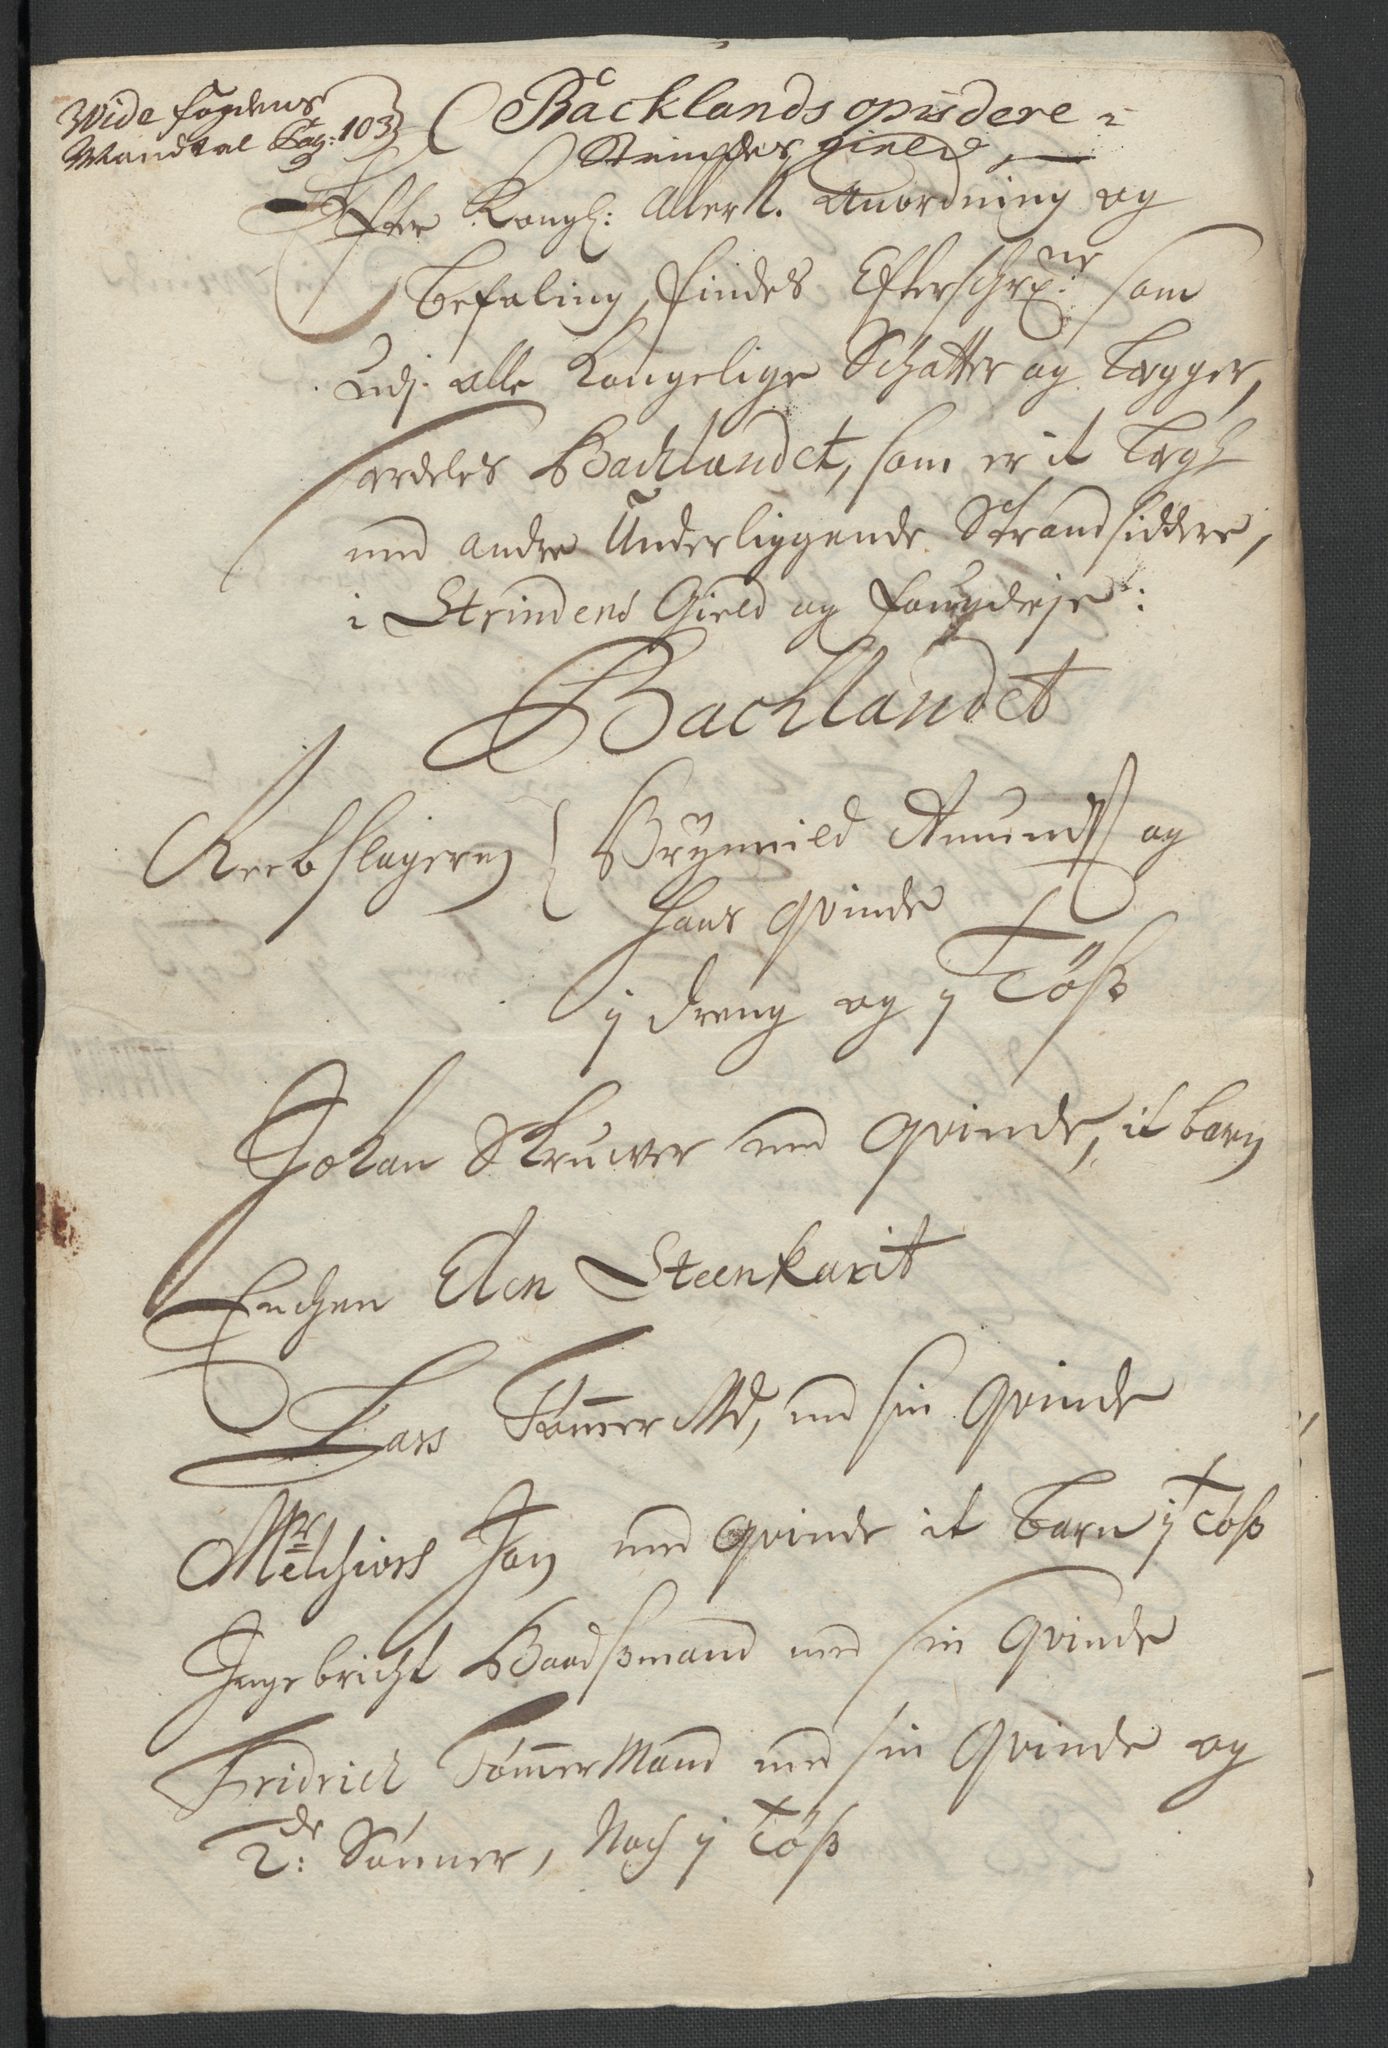 Wide fogdens
Mandtal Pag: 103
Backlands opsidere i
Strindes gield
Efter Kongl: Allern. Anordning og
befaling, findes Efterschrne som
Udj alle Kongelige Schatter og Legger,
særdeles Bachlandet, som er it Legh
med andre Underliggende Strandsiddere,
i Strindens Gield og fougderje:
Bachlandet
Reebslageren Brynnild Amunds og
hans qvinde
1 dreng og 1 Tøß
Johan Skruwer med qvinde, it barn
Enchen Elen Steenkarit
Lars Tømmer Md, med sin Qvinde
Mr Melchiors Jon med qvinde it barn 1 Tøß
Ingebricht Baadßmand med sin Qvinde
Fridrich Tømmer Mand med sin Qvinde og
2de: Sønner, Noch 1 Tøß